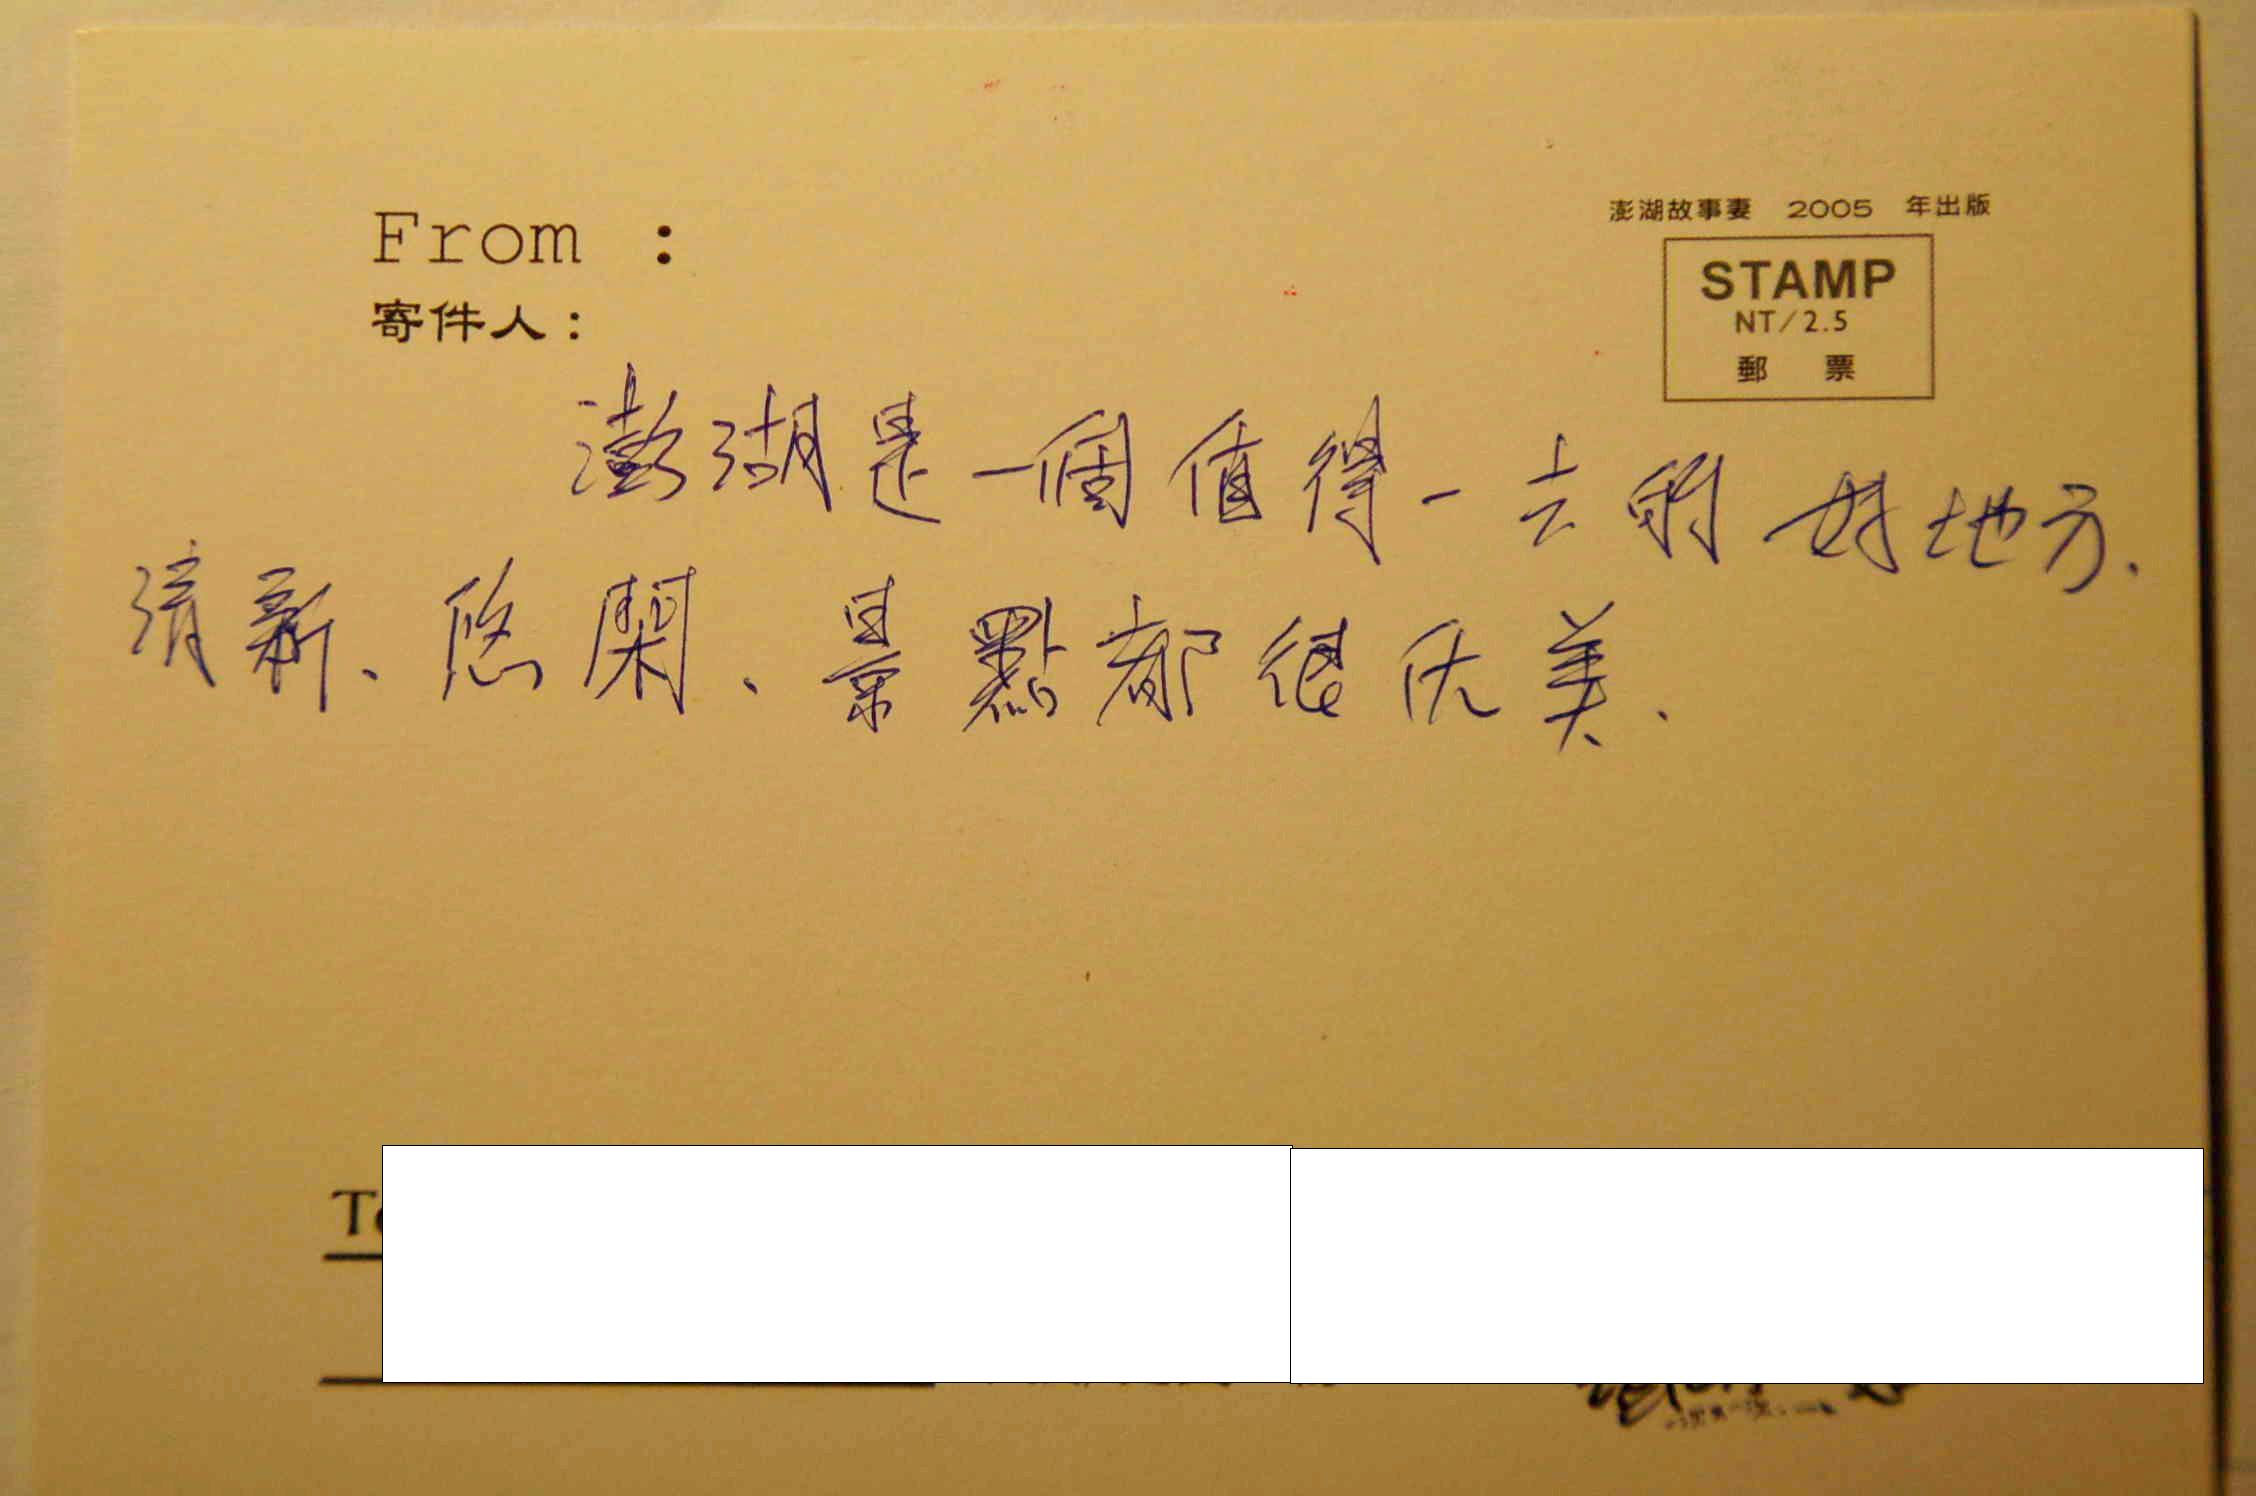 From :
寄件人:
澎湖故事妻 2005 年出版
STAMP
NT/2.5
郵 票
澎湖是一個值得一去的好地方.
清新、悠閑、景點都很优美.